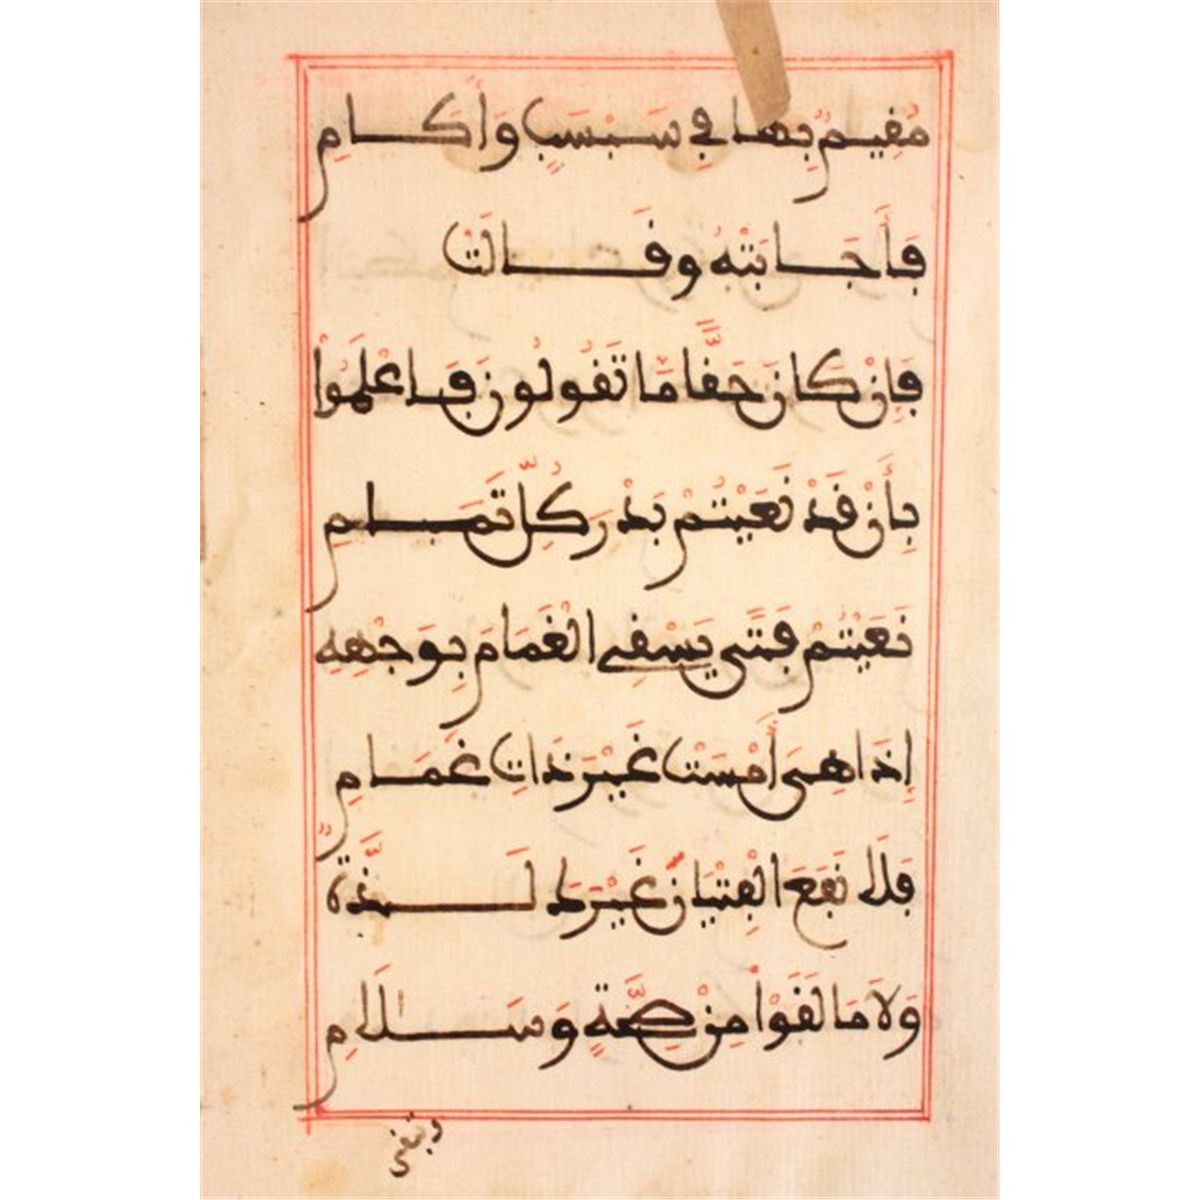 مُقِيمٌ بِهَا فِي سَبْسَبٍ وَأَكَامِ
فَأَجَابَتْهُ وَقَالَتْ
فَإِنْ كَانَ حَقًّا مَّا تَقُولُونَ فَاعْلَمُوا
بِأَنْ قَدْ نَعَيْتُمْ بَدْرَ كُلِّ تَمَامِ
نَعَيْتُمْ فَتًى يَسْقِي الْغَمَامَ بِوَجْهِهِ
إِذَا هِيَ أَمْسَتْ غَيْرَ ذَاتِ غَمَامِ
فَلَا نَفَعَ الْفِتْيَانَ غَيْرَكَ لَذَّةٌ
وَلَا مَا لَقَوْا مِنْ صِحَّةٍ وَسَلَامِ